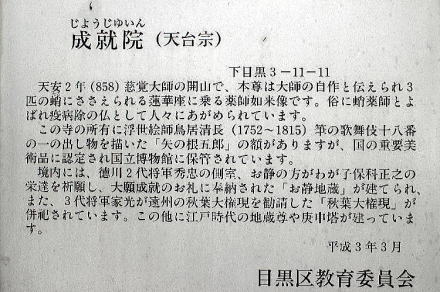 じようじゆいん
成就院(天台宗)
下目黒3-11-11
天安2年(858)慈覚大師の開山で、本尊は大師の自作と伝えられ3
匹の蛸にささえられる蓮華座に乗る薬師如来像です。俗に蛸薬師とよ
ばれ疫病除の仏として人々にあがめられています。
この寺の所有に浮世絵師鳥居清長(1752~1815)筆の歌舞伎十八番
の一の出し物を描いた「矢の根五郎」の額がありますが、国の重要美
術品に認定され国立博物館に保管されています。
境内には、徳川2代将軍秀忠の側室、お静の方がわが子保科正之の
栄達を祈願し、大願成就のお礼に奉納された「お静地蔵」が建てられ、
また、3代将軍家光が遠州の秋葉大権現を勧請した「秋葉大権現」が
併祀されています。この他に江戸時代の地蔵尊や庚申塔が建っていま
す。
平成3年3月
目黒区教育委員会